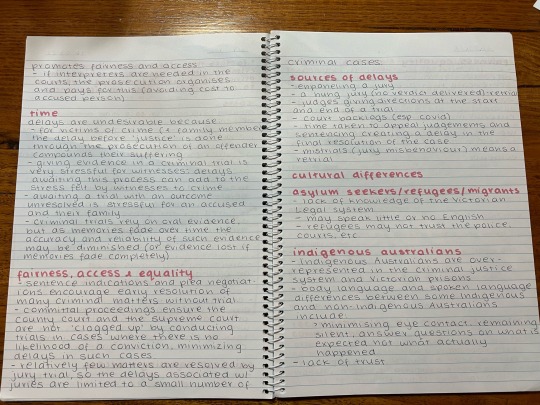 promotes fairness and access
- if interpreters are needed in the
courts, the prosecution organises
and pays for this (avoiding cost to
accused person)
time
delays are undesirable because
- for victims of crime (+ family members)
the delay before 'justice' is done
through the prosecution of an offender
compounds their suffering
- giving evidence in a criminal trial is
very stressful for witnesses: delays
awaiting this process can add to the
stress felt by witnesses to crime
- awaiting a trial with an outcome
unresolved is stressful for an accused
and their family
- Criminal trials rely on oral evidence,
but as memories fade over time the
accuracy and reliability of such evidence
may be diminished (or evidence lost if
memories fade completely)
fairness, access & equality
- sentence indications and plea negotiat-
ions encourage early resolution of
many criminal matters without trial
- committal proceedings ensure the
county court and the supreme court
are not 'clogged up' by conducting
trials in cases where there is no
likelihood of a conviction, minimizing
delays in such cases
- relatively few matters are resolved by
jury trial, so the delays associated w/
juries are limited to a small number of
criminal cases.
sources of delays
- empaneling a jury
- a hung jury (no verdict delivered) retrial
- judges giving directions at the start
and end of a trial
- court backlogs (esp covid)
- time taken to appeal judgements and
sentencing creating a delay in the
final resolution of the case
- mistrials (jury misbehaviour) means a
retrial
cultural differences
asylum seekers/refugees/migrants
- lack of knowledge of the Victorian
legal system
- may speak little or no English
- refugees may not trust the police
courts, etc
indigenous australians
- Indigenous Australians are over-
represented in the criminal justice
system and Victorian prisons
- body language and spoken language
differences between some Indigenous
and non-indigenous Australians
include
> minimising eye contact, remaining
silent, answer questions on what is
expected not what actually
happened
- lack of trust